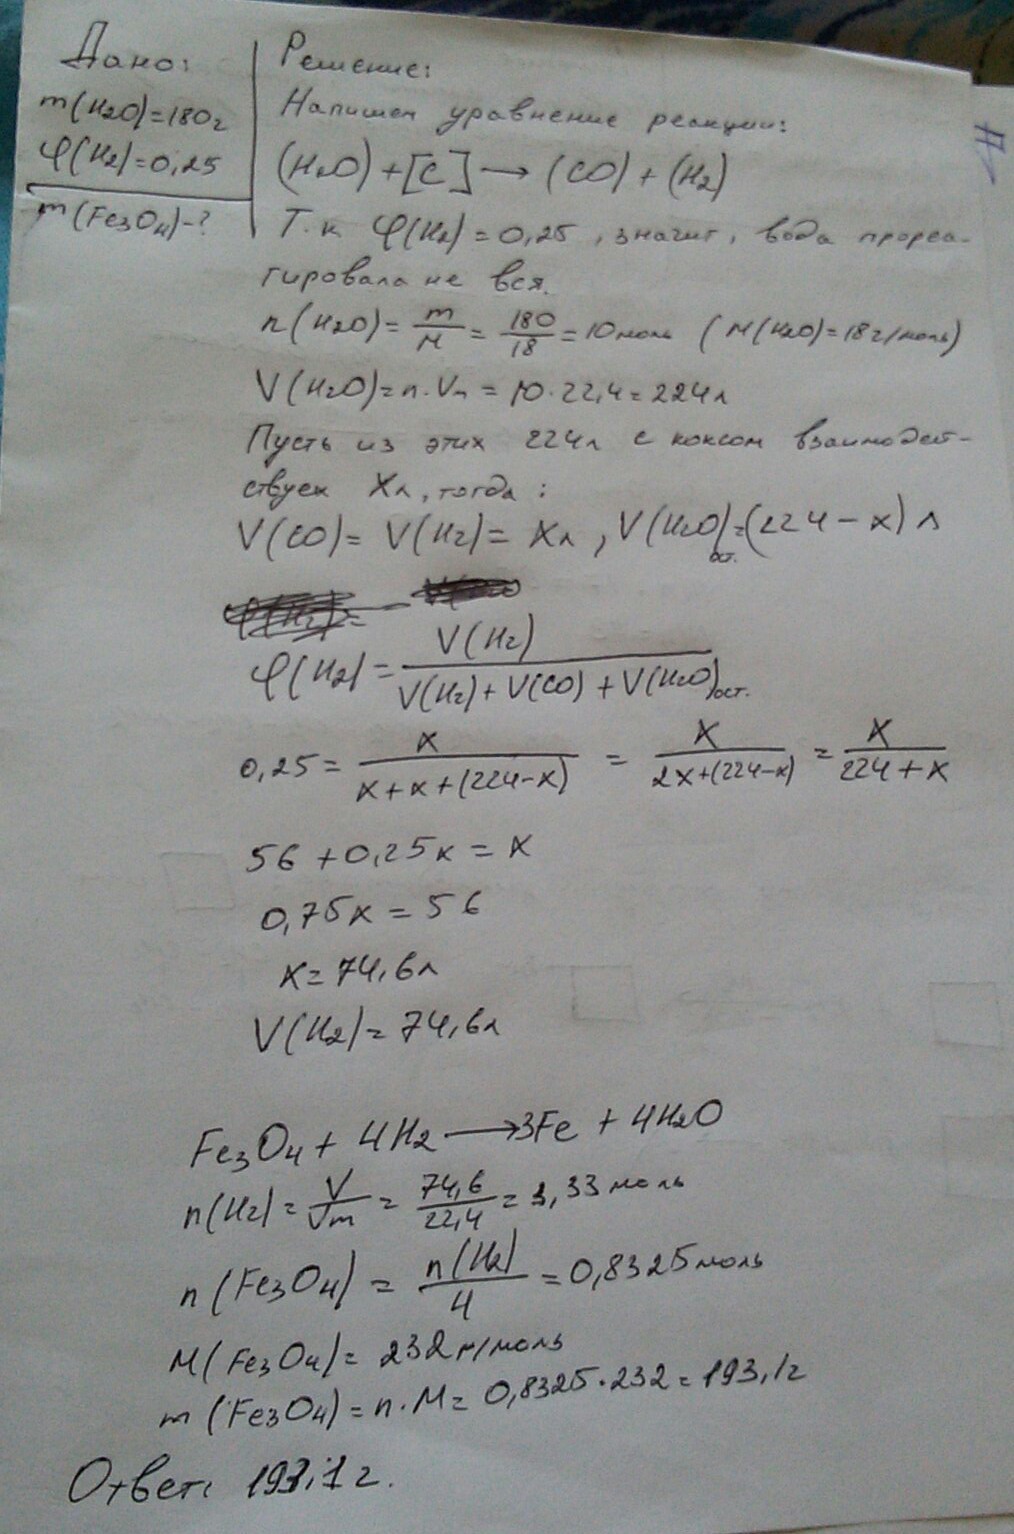 Дано:
m(H2O)=180г
φ(H2)=0,25
m(Fe3O4)-?
Решение:
Напишем уравнение реакции:
(H2O)+[C]→(CO)+(H2)
Т.к φ(H2)=0,25, значит, вода прореа-
гировала не вся.
n(H2O)=m/M=180/18=10моль (M(H2O)=18г/моль)
V(H2O)=n·Vm=10·22,4=224л
Пусть из этих 224л с коксом взаимодей-
ствует Xл, тогда:
V(CO)=V(H2)=Xл, V(H2O)ост.=(224-x)л
φ(H2)=V(H2)/(V(H2)+V(CO)+V(H2O)ост.)
0,25=x/(x+x+(224-x))=x/(2x+(224-x))=x/(224+x)
56+0,25x=x
0,75x=56
x=74,6л
V(H2)=74,6л
Fe3O4+4H2→3Fe+4H2O
n(H2)=V/Vm=74,6/22,4=3,33моль
n(Fe3O4)=n(H2)/4=0,8325моль
M(Fe3O4)=232г/моль
m(Fe3O4)=n·M=0,8325·232=193,1г
Ответ: 193,1г.